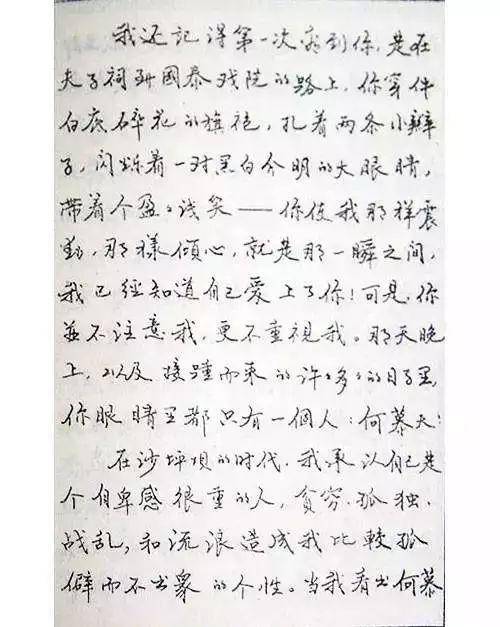 我还記得第一次看到你,是在
夫子祠到國泰戏院的路上,你穿件
白底碎花的旗袍,扎着两条小辮
子,闪烁着一对黑白分明的大眼睛,
帶着个盈々浅笑——你使我那祥震
動,那樣傾心,就是那一瞬之间,
我已經知道自己愛上了你!可是,你
並不注意我,更不重視我。那天晚
上,以及接踵而来的许々多々的日子里,
你眼睛里都只有一個人:何慕天!
在沙坪坝的时代,我承认自己是
个自卑感很重的人,貧穷.孤独.
战乱,和流浪造成我比較孤
僻而不出衆的个性。当我看出何慕